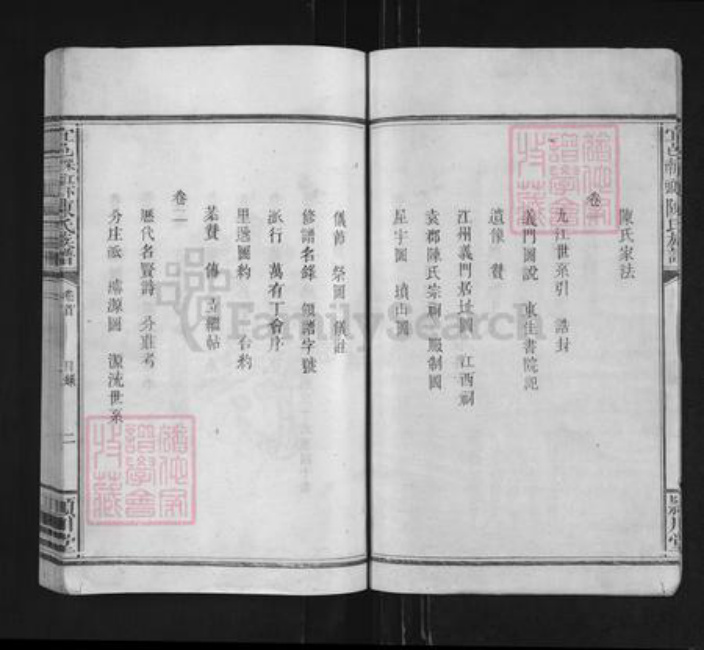 陳氏家法
卷一
九江世系引 誥封
義門圖說 東佳書院記
遺像 贊
江州義門居址圖 江西祠
袁郡陳氏宗祠 服制圖
星宇圖 墳山圖
儀節 祭圖 儀註
修譜名錄 領譜字號
派行 萬有丁會序
里邊圖約 合約
墓贊 傳 立繼帖
卷二
歷代名賢爵 分進考
分庄派 溯源圖 源流世系
卷首
目錄
二
潁川堂
陳氏族譜
FamilySearch